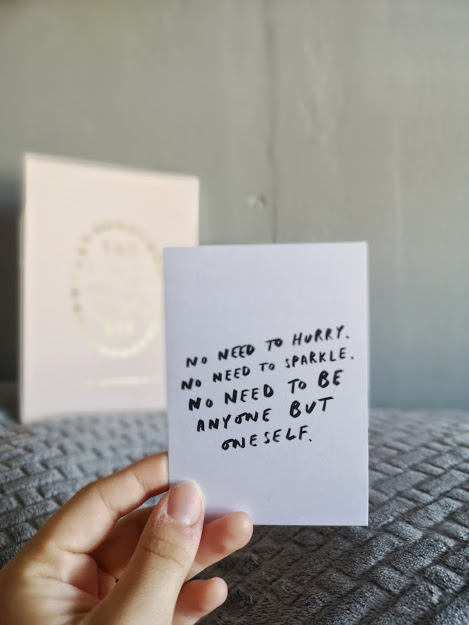 NO NEED TO HURRY.
NO NEED TO SPARKLE.
NO NEED TO BE
ANYONE BUT
ONESELF.